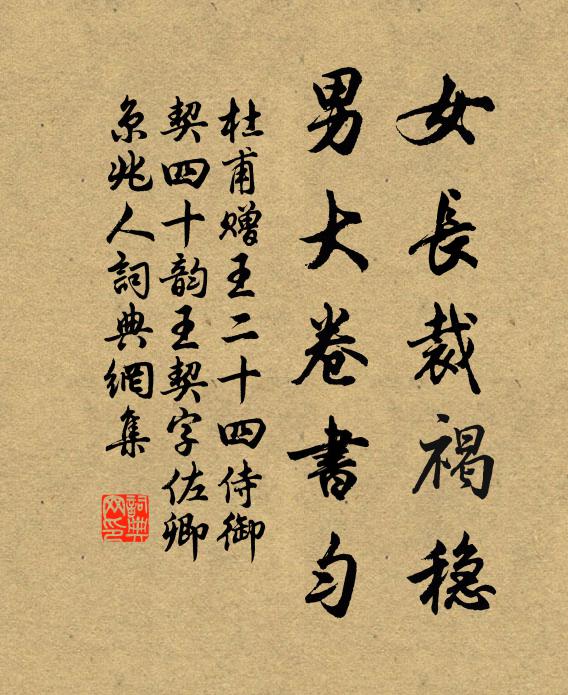 女長裁褐穩
男大卷書匀
杜甫赠王二十四侍御
契四十韵王契字佐卿
京兆人詞典網集
詞典
网印